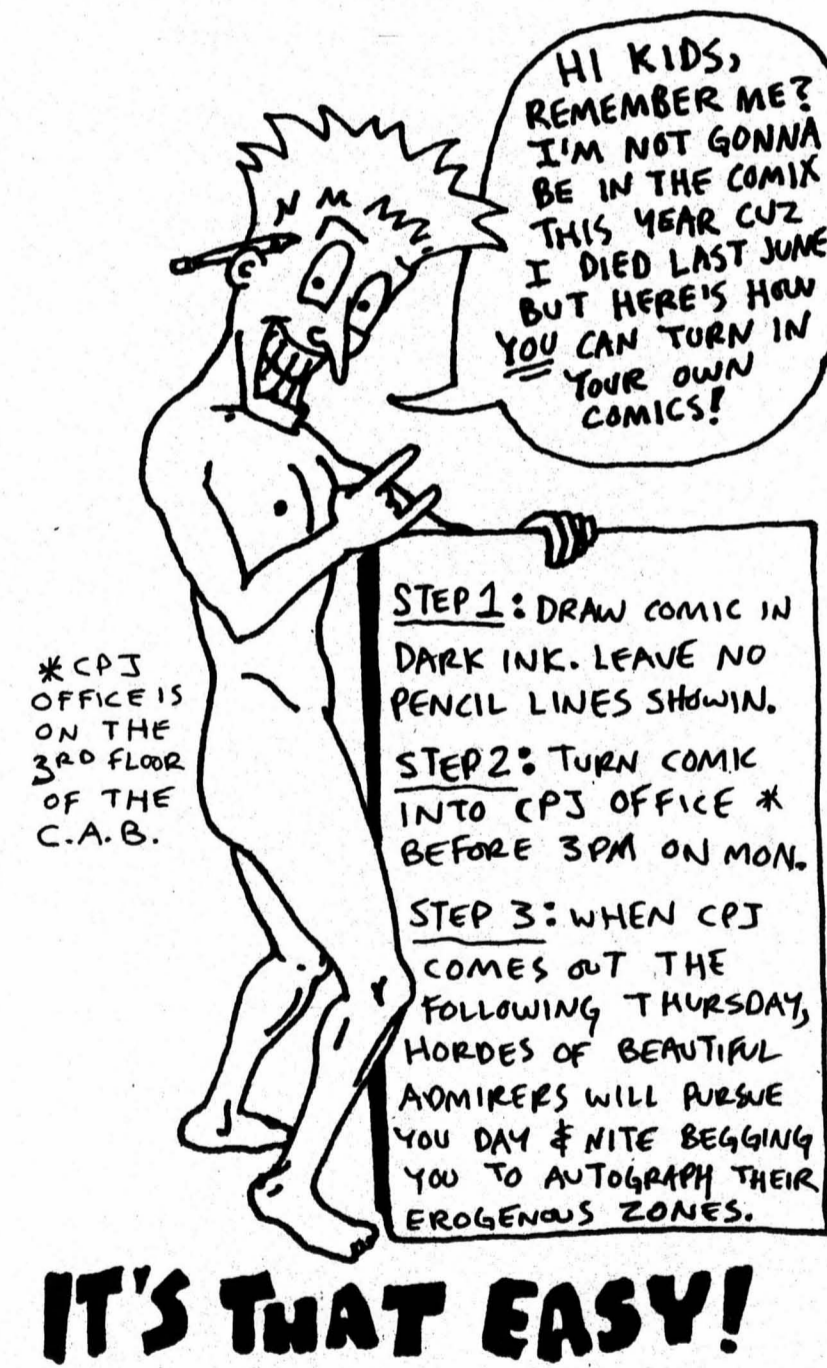 HI KIDS,
REMEMBER ME?
I'M NOT GONNA
BE IN THE COMIX
THIS YEAR CUZ
I DIED LAST JUNE
BUT HERE'S HOW
YOU CAN TURN IN
YOUR OWN
COMICS!
STEP 1: DRAW COMIC IN
DARK INK. LEAVE NO
PENCIL LINES SHOWIN.
STEP 2: TURN COMIC
INTO CPJ OFFICE *
BEFORE 3PM ON MON.
STEP 3: WHEN CPJ
COMES OUT THE
FOLLOWING THURSDAY,
HORDES OF BEAUTIFUL
ADMIRERS WILL PURSUE
YOU DAY & NITE BEGGING
YOU TO AUTOGRAPH THEIR
EROGENOUS ZONES.
* CPJ
OFFICE IS
ON THE
3RD FLOOR
OF THE
C.A.B.
IT'S THAT EASY!